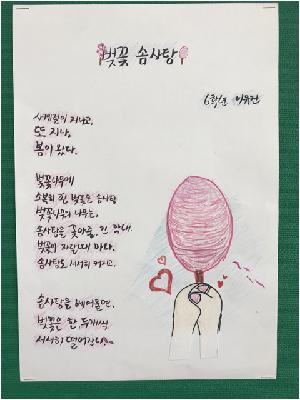 벚꽃 솜사탕
6학년 이유진
사계절이 지나고,
또 지나,
봄이 왔다.
벚꽃나무에
소복히 핀 벚꽃은 솜사탕
벚꽃나무의 나무는,
솜사탕을 꽂아줄, 긴 막대
벚꽃이 자랄때 마다,
솜사탕도 서서히 커지고,
솜사탕을 베어물면,
벚꽃은 한, 두개씩
서서히 떨어진다.